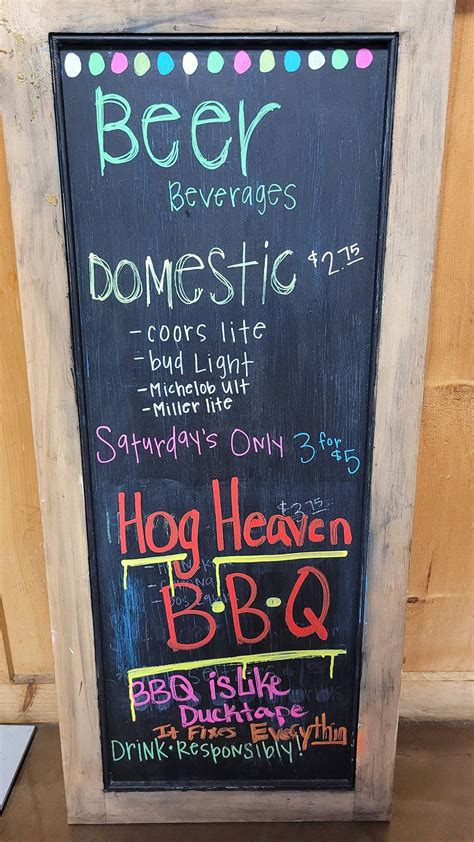 Beer
Beverages
DOMESTIC $2.75
-coors lite
-bud Light
-Michelob Ult
-Miller lite
Saturday's Only 3 for $5
$3.75
Hog Heaven
B•B•Q
BBQ is Like
Ducktape
It Fixes Everything
Drink•Responsibly!